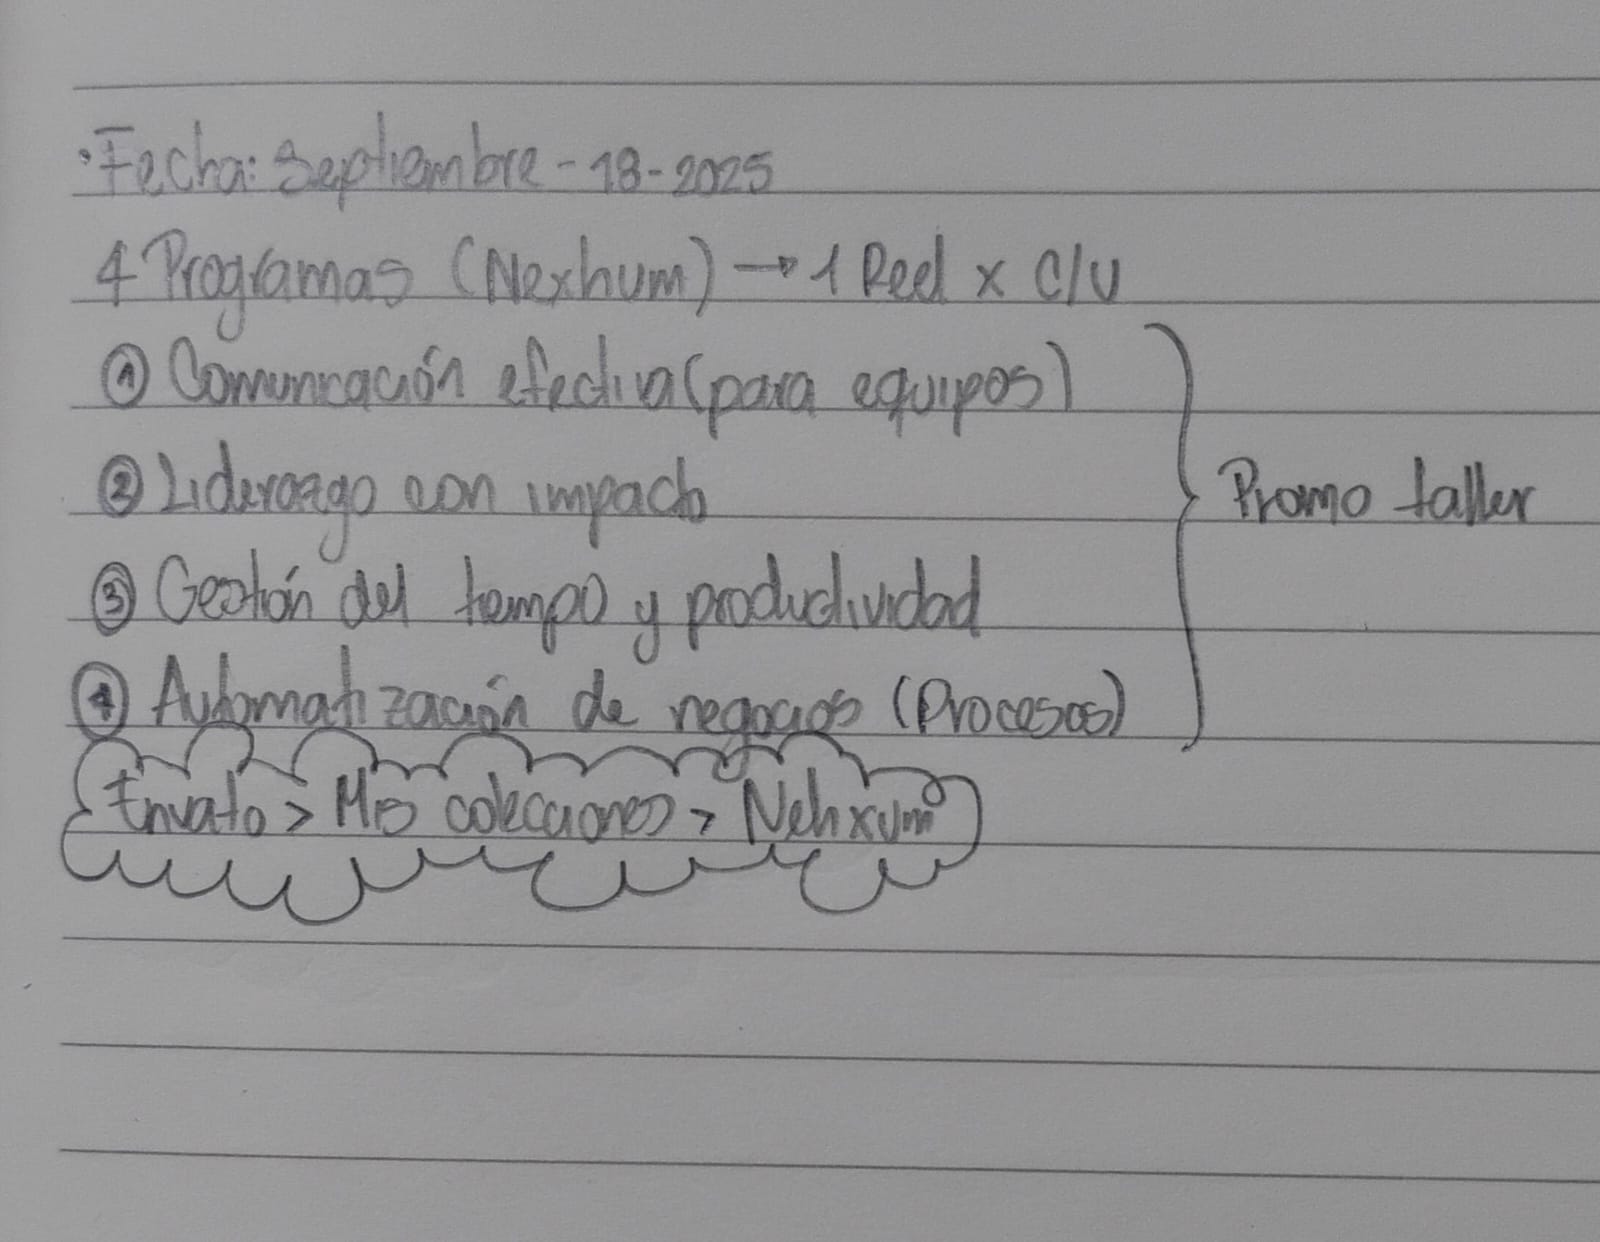 • Fecha: Septiembre - 18 - 2025
4 Programas (Nexhum) → 1 Reel x C/U
① Comunicación efectiva (para equipos)
② Liderazgo con impacto
Promo taller
③ Gestión del tiempo y productividad
④ Automatización de negocios (Procesos)
Envato > Mis colecciones > Nehxum